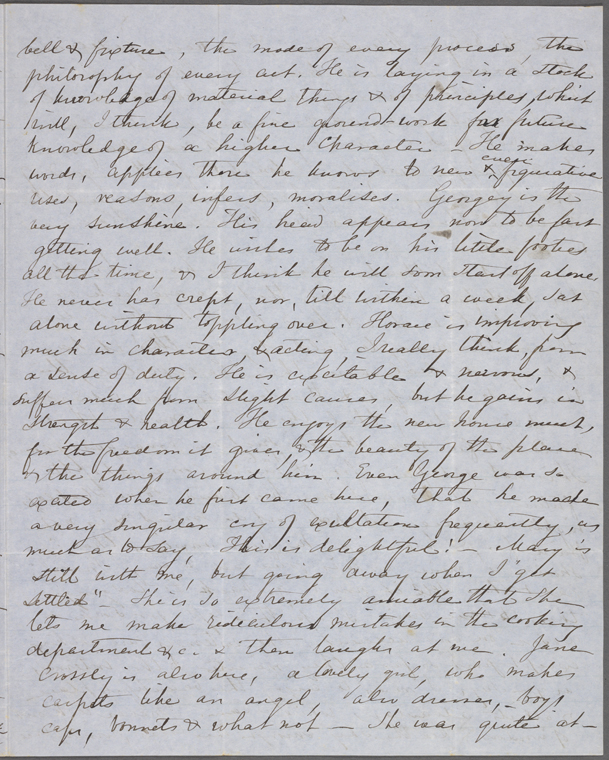 bell & fixture, the mode of every process, the
philosophy of every art. He is laying in a stock
of knowledge of material things & of principles, which
will, I think, be a fine ground-work for future
knowledge of a higher character. He makes
words, applies those he knows to new & figurative
uses, reasons, infers, moralises. Georgey is the
very sunshine. His head appears now to be fast
getting well. He wishes to be on his little footies
all the time, & I think he will soon start off alone.
He never has crept, nor, till within a week, sat
alone without toppling over. Horace is improving
much in character, & acting, I really think, from
a sense of duty. He is excitable & nervous, &
suffers much from slight causes, but he gains in
strength & health. He enjoys the new house much,
for the freedom it gives, & the beauty of the place
& the things around him. Even George was so
 when he first came here, that he made
a very singular cry of exultation frequently, as
much as to say, This is delightful! — Mary is
still with me, but going away when I "get
settled" — She is so extremely amiable that she
lets me make ridiculous mistakes in the cooking
department &c. & then laughs at me. Jane
Crossly is also here, a lovely girl, who makes
carpets like an angel, also dresses, boys
caps, bonnets & what not — She was quite at-